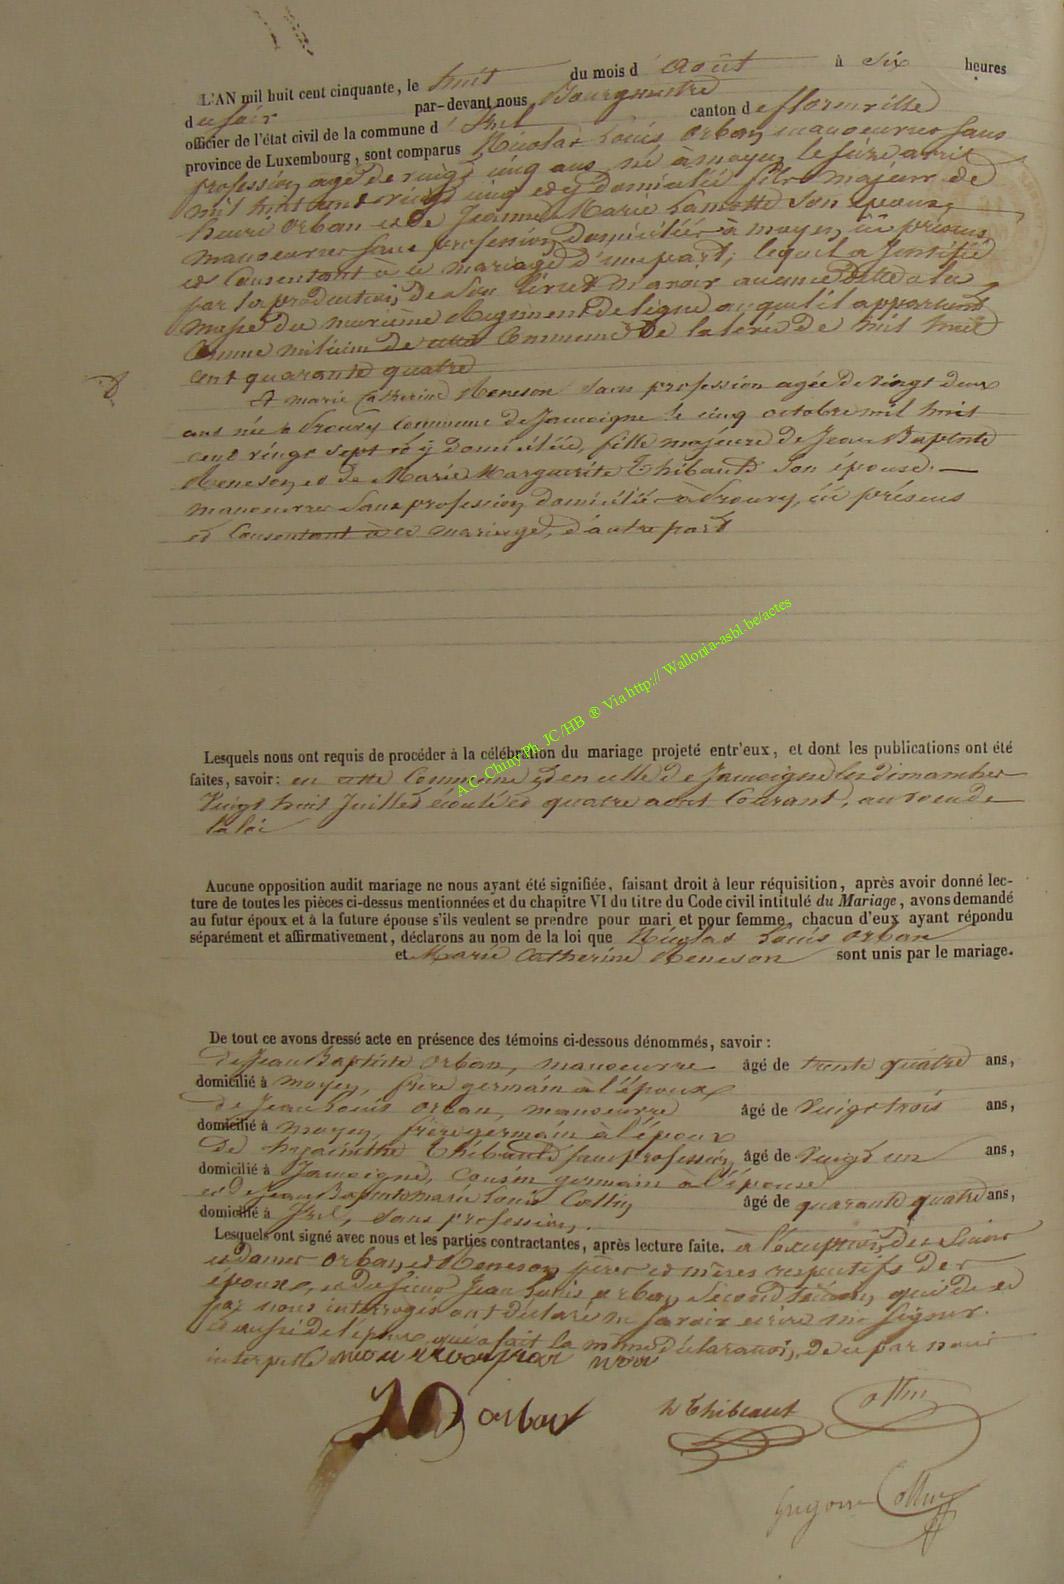 L'AN mil huit cent cinquante, le huit du mois d' Août à six heures
du soir par-devant nous Bourgmestre
officier de l'état civil de la commune d' Izel canton de florenville
province de Luxembourg, sont comparus Nicolas Louis Orban manoeuvre sans
profession agé de vingt cinq ans né à moyen le seize avril
mil huit cent vingt cinq et y domicilié fils majeur de
henri Orban et de Jeanne Marie Lamotte son épouse,
manoeuvres sans profession domiciliés à moyen ici présens
et Consentant a ce mariage d'une part, lequel a Justifié
par la production de son livret n'avoir aucune dette a la
masse du Regiment de ligne auquel il appartient
Comme milicien de cette Commune de la levée de mil huit
cent quarante quatre
Et marie Catherine Meneson sans profession agée de vingt deux
ans née à Prouvy Commune de Jamoigne le cinq octobre mil huit
cent vingt sept et y domiciliée, fille majeure de Jean Baptiste
Meneson et de Marie Marguerite Thibault son épouse.
manoeuvres sans profession domiciliés à Prouvy, ici présens
et Consentant à ce mariage, d'autre part
A.C. Chiny/Ph. JC/HB ® Via http:// Wallonia-asbl.be/actes
Lesquels nous ont requis de procéder à la célébration du mariage projeté entr'eux, et dont les publications ont été
faites, savoir: en cette Commune et en celle de Jamoigne les dimanches
Vingt huit Juillet écoulé et quatre aout Courant, au voeu de
la loi
Aucune opposition audit mariage ne nous ayant été signifiée, faisant droit à leur réquisition, après avoir donné lec-
ture de toutes les pièces ci-dessus mentionnées et du chapitre VI du titre du Code civil intitulé du Mariage, avons demandé
au futur époux et à la future épouse s'ils veulent se prendre pour mari et pour femme, chacun d'eux ayant répondu
séparément et affirmativement, déclarons au nom de la loi que Nicolas Louis Orban
et Marie Catherine Meneson sont unis par le mariage.
De tout ce avons dressé acte en présence des témoins ci-dessous dénommés, savoir :
de Jean Baptiste Orban, manoeuvre âgé de trente quatre ans,
domicilié à moyen, frère germain à l'époux
de Jean Louis Orban, manoeuvre âgé de Vingt trois ans,
domicilié à moyen, frère germain à l'époux
de hyacinthe Thibault sans profession, âgé de Vingt un ans,
domicilié à Jamoigne, Cousin germain a l'épouse
et de Jean Baptiste marie Louis Collin âgé de quarante quatre ans,
domicilié à Izel, sans profession.
Lesquels ont signé avec nous et les parties contractantes, après lecture faite. à l'exception des Sieurs
et dames Orban et Meneson pères et mères respectifs des
époux, et du sieur Jean Louis orban second témoin, qui de ce
par nous interrogés ont déclaré ne savoir écrire ni signer.
et aussi de l'épouse qui a fait la même déclaration, de ce par nous
interpellé
orban h Thibeaut ollin
Gregoire Collin